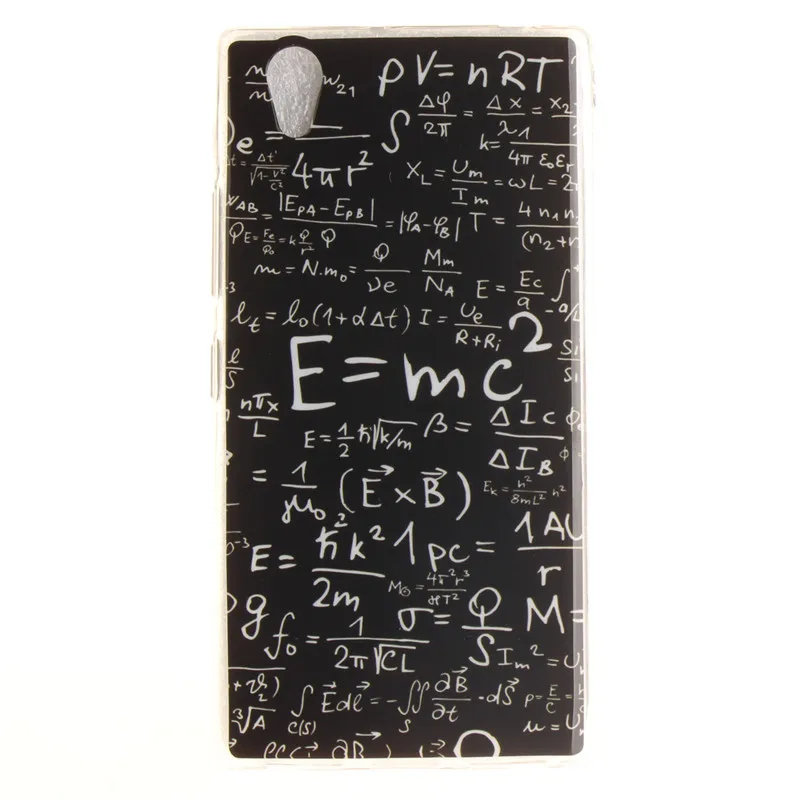 pV = nRT
w₂₁
Δφ/2π = Δx/λ = x₂
e =
4πr²
k = 1/4πε₀εᵣ
Δt = Δt'/√1-v²/c²
X_L = U_m/I_m = ωL = 2
W_AB/Q = |E_PA - E_PB|/Q = |φ_A - φ_B|
T = 4n₁n/(n₂+n
E = F_e/φ₀ = k Q/r²
m = N·m₀ = Q/νe M_m/N_A
E = E_c/a ∫
l_t = l₀(1+αΔt)
I = U_e/R+R_i
E = mc²
l/S
nπx/L
E = 1/2 ħ√k/m
β = ΔI_C/ΔI_B
= 1/μ₀ (E⃗ × B⃗)
E_K = h²/8mL² n²
E = ħ²k²/2m
1pc = 1AU/r
M⊙ = 4π²r³/ϰT²
ρg
f₀ = 1/2π√CL
σ = Q/S
M =
I_m² = U
∫C(S) E⃗dl⃗ = -∬S ∂B⃗/∂t · dS⃗
p = E/C =
³√A
u = U